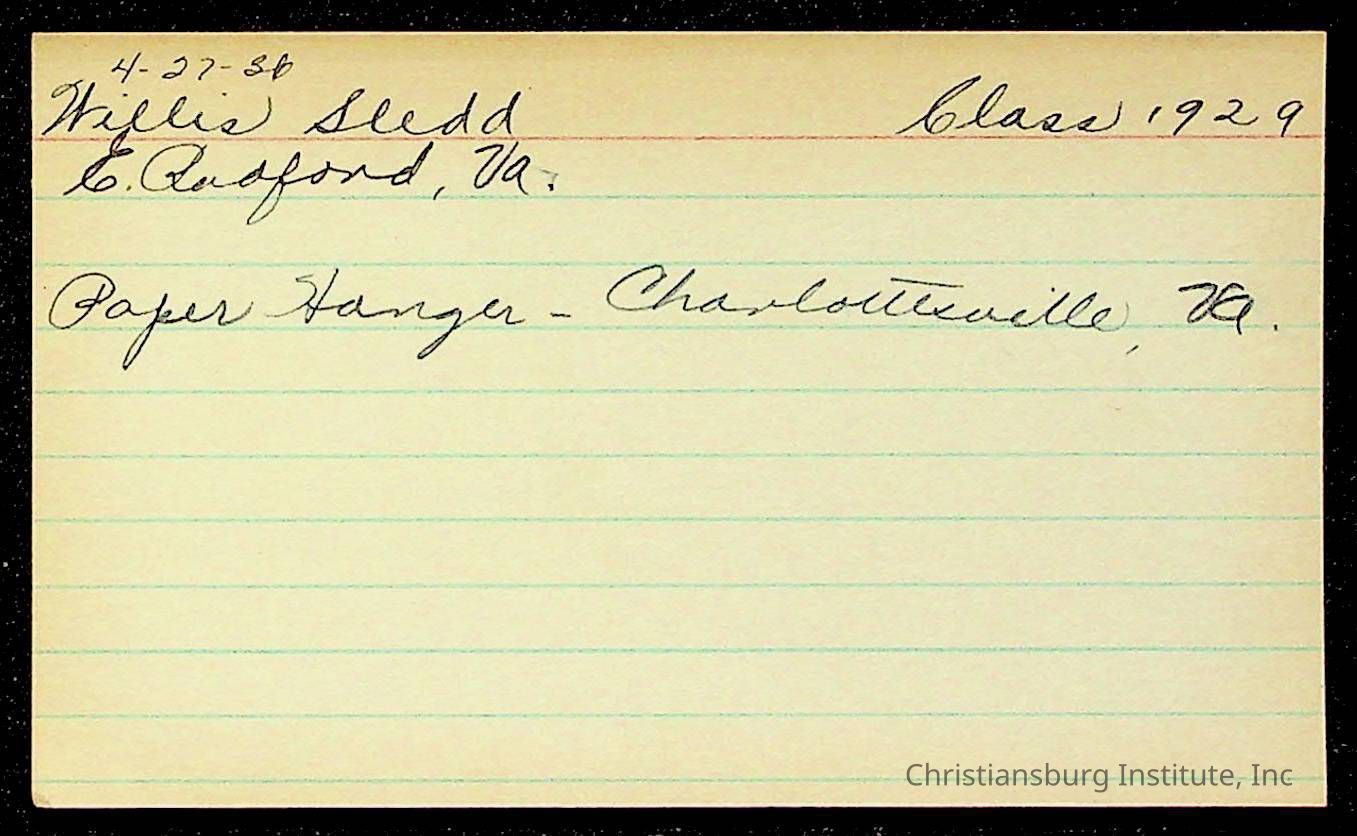 4-27-36
Willis Sledd Class 1929
E. Radford, Va.
Paper Hanger - Charlottesville, Va.
Christiansburg Institute, Inc